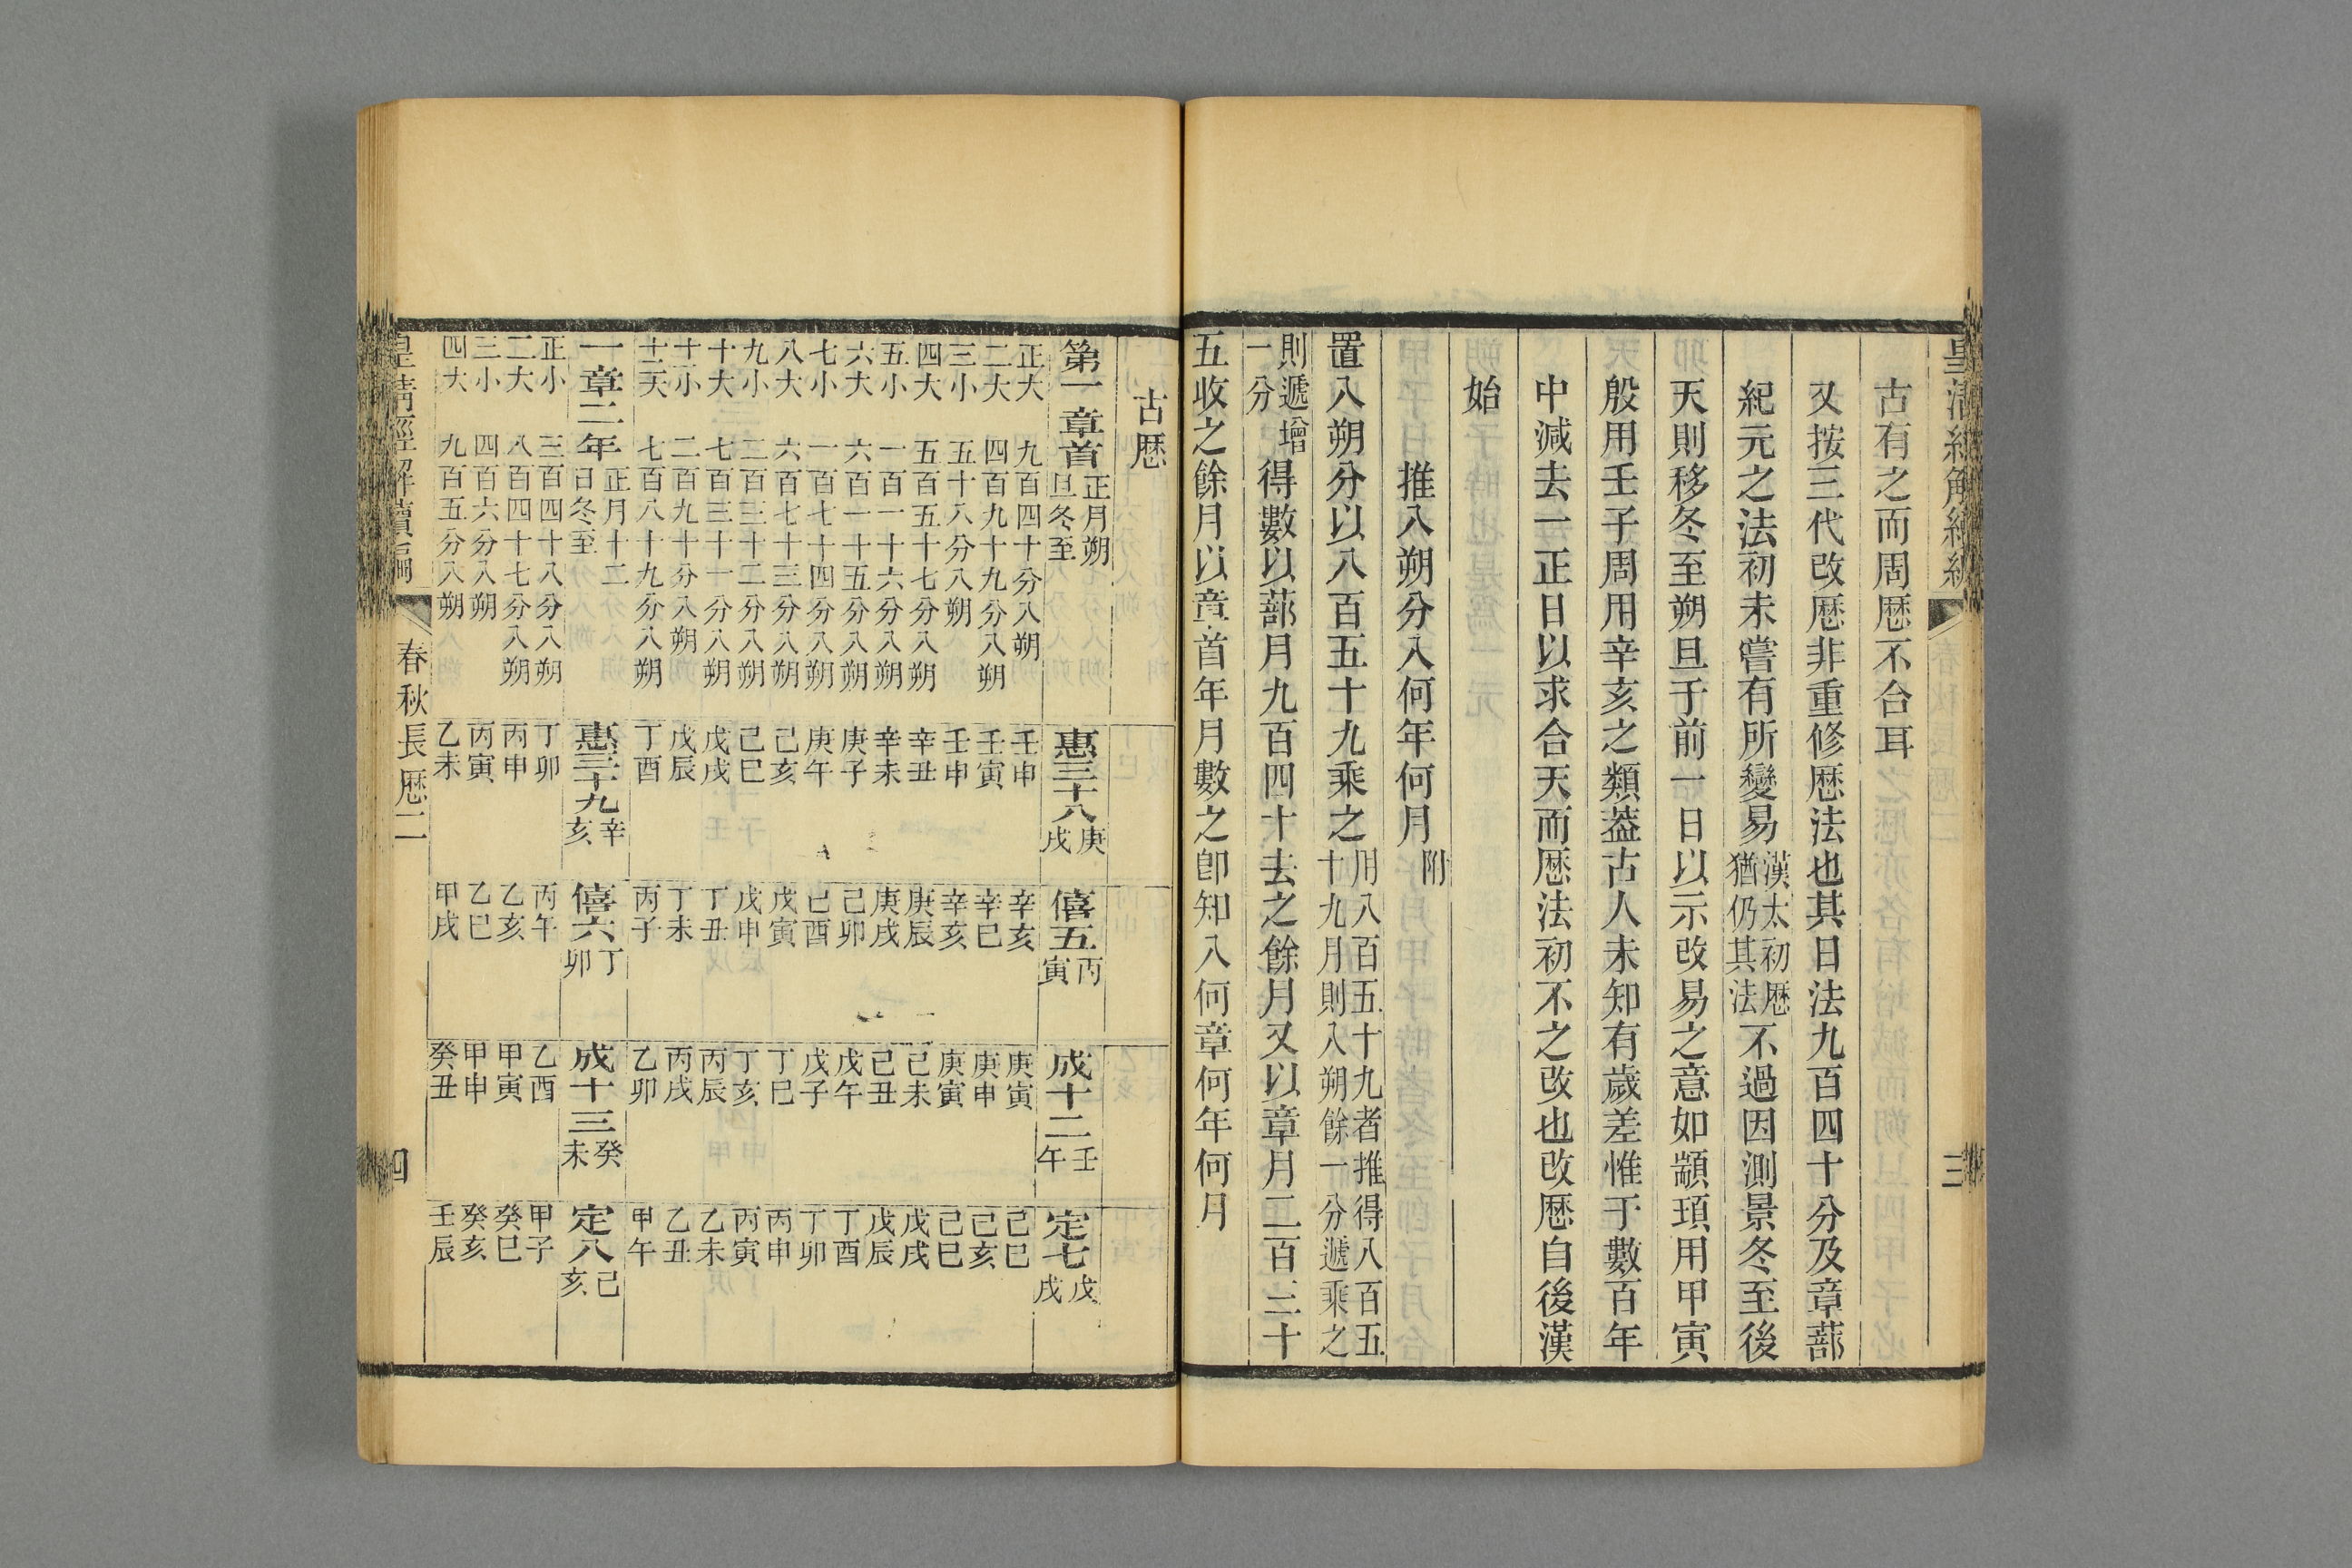 古有之而周厯不合耳
又按三代改厯非重修厯法也其日法九百四十分及章蔀
紀元之法初未嘗有所變易漢太初厯猶仍其法不過因測景冬至後
天則移冬至朔旦于前一日以示改易之意如顓頊用甲寅
殷用壬子周用辛亥之類葢古人未知有歲差惟于數百年
中減去一正日以求合天而厯法初不之改也改厯自後漢
始
推入朔分入何年何月附
置入朔分以八百五十九乘之用八百五十九者推得八百五十九月則入朔餘一分遞乘之
則遞增一分得數以蔀月九百四十去之餘月又以章月二百三十
五收之餘月以章首年月數之卽知入何章何年何月
古厯
第一章首正月朔旦冬至 惠三十八庚戌 僖五丙寅 成十二壬午 定七戊戌
正大 九百四十分入朔 壬申 辛亥 庚寅 己巳
二大 四百九十九分入朔 壬寅 辛巳 庚申 己亥
三小 五十八分入朔 壬申 辛亥 庚寅 己巳
四大 五百五十七分入朔 辛丑 庚辰 己未 戊戌
五小 一百一十六分入朔 辛未 庚戌 己丑 戊辰
六大 六百一十五分入朔 庚子 己卯 戊午 丁酉
七小 一百七十四分入朔 庚午 己酉 戊子 丁卯
八大 六百七十三分入朔 己亥 戊寅 丁巳 丙申
九小 二百三十二分入朔 己巳 戊申 丁亥 丙寅
十大 七百三十一分入朔 戊戌 丁丑 丙辰 乙未
十一小 二百九十分入朔 戊辰 丁未 丙戌 乙丑
十二大 七百八十九分入朔 丁酉 丙子 乙卯 甲午
一章二年正月十二日冬至 惠三十九辛亥 僖六丁卯 成十三癸未 定八己亥
正小 三百四十八分入朔 丁卯 丙午 乙酉 甲子
二大 八百四十七分入朔 丙申 乙亥 甲寅 癸巳
三小 四百六分入朔 丙寅 乙巳 甲申 癸亥
四大 九百五分入朔 乙未 甲戌 癸丑 壬辰
皇清經解續編 春秋長厯二 四